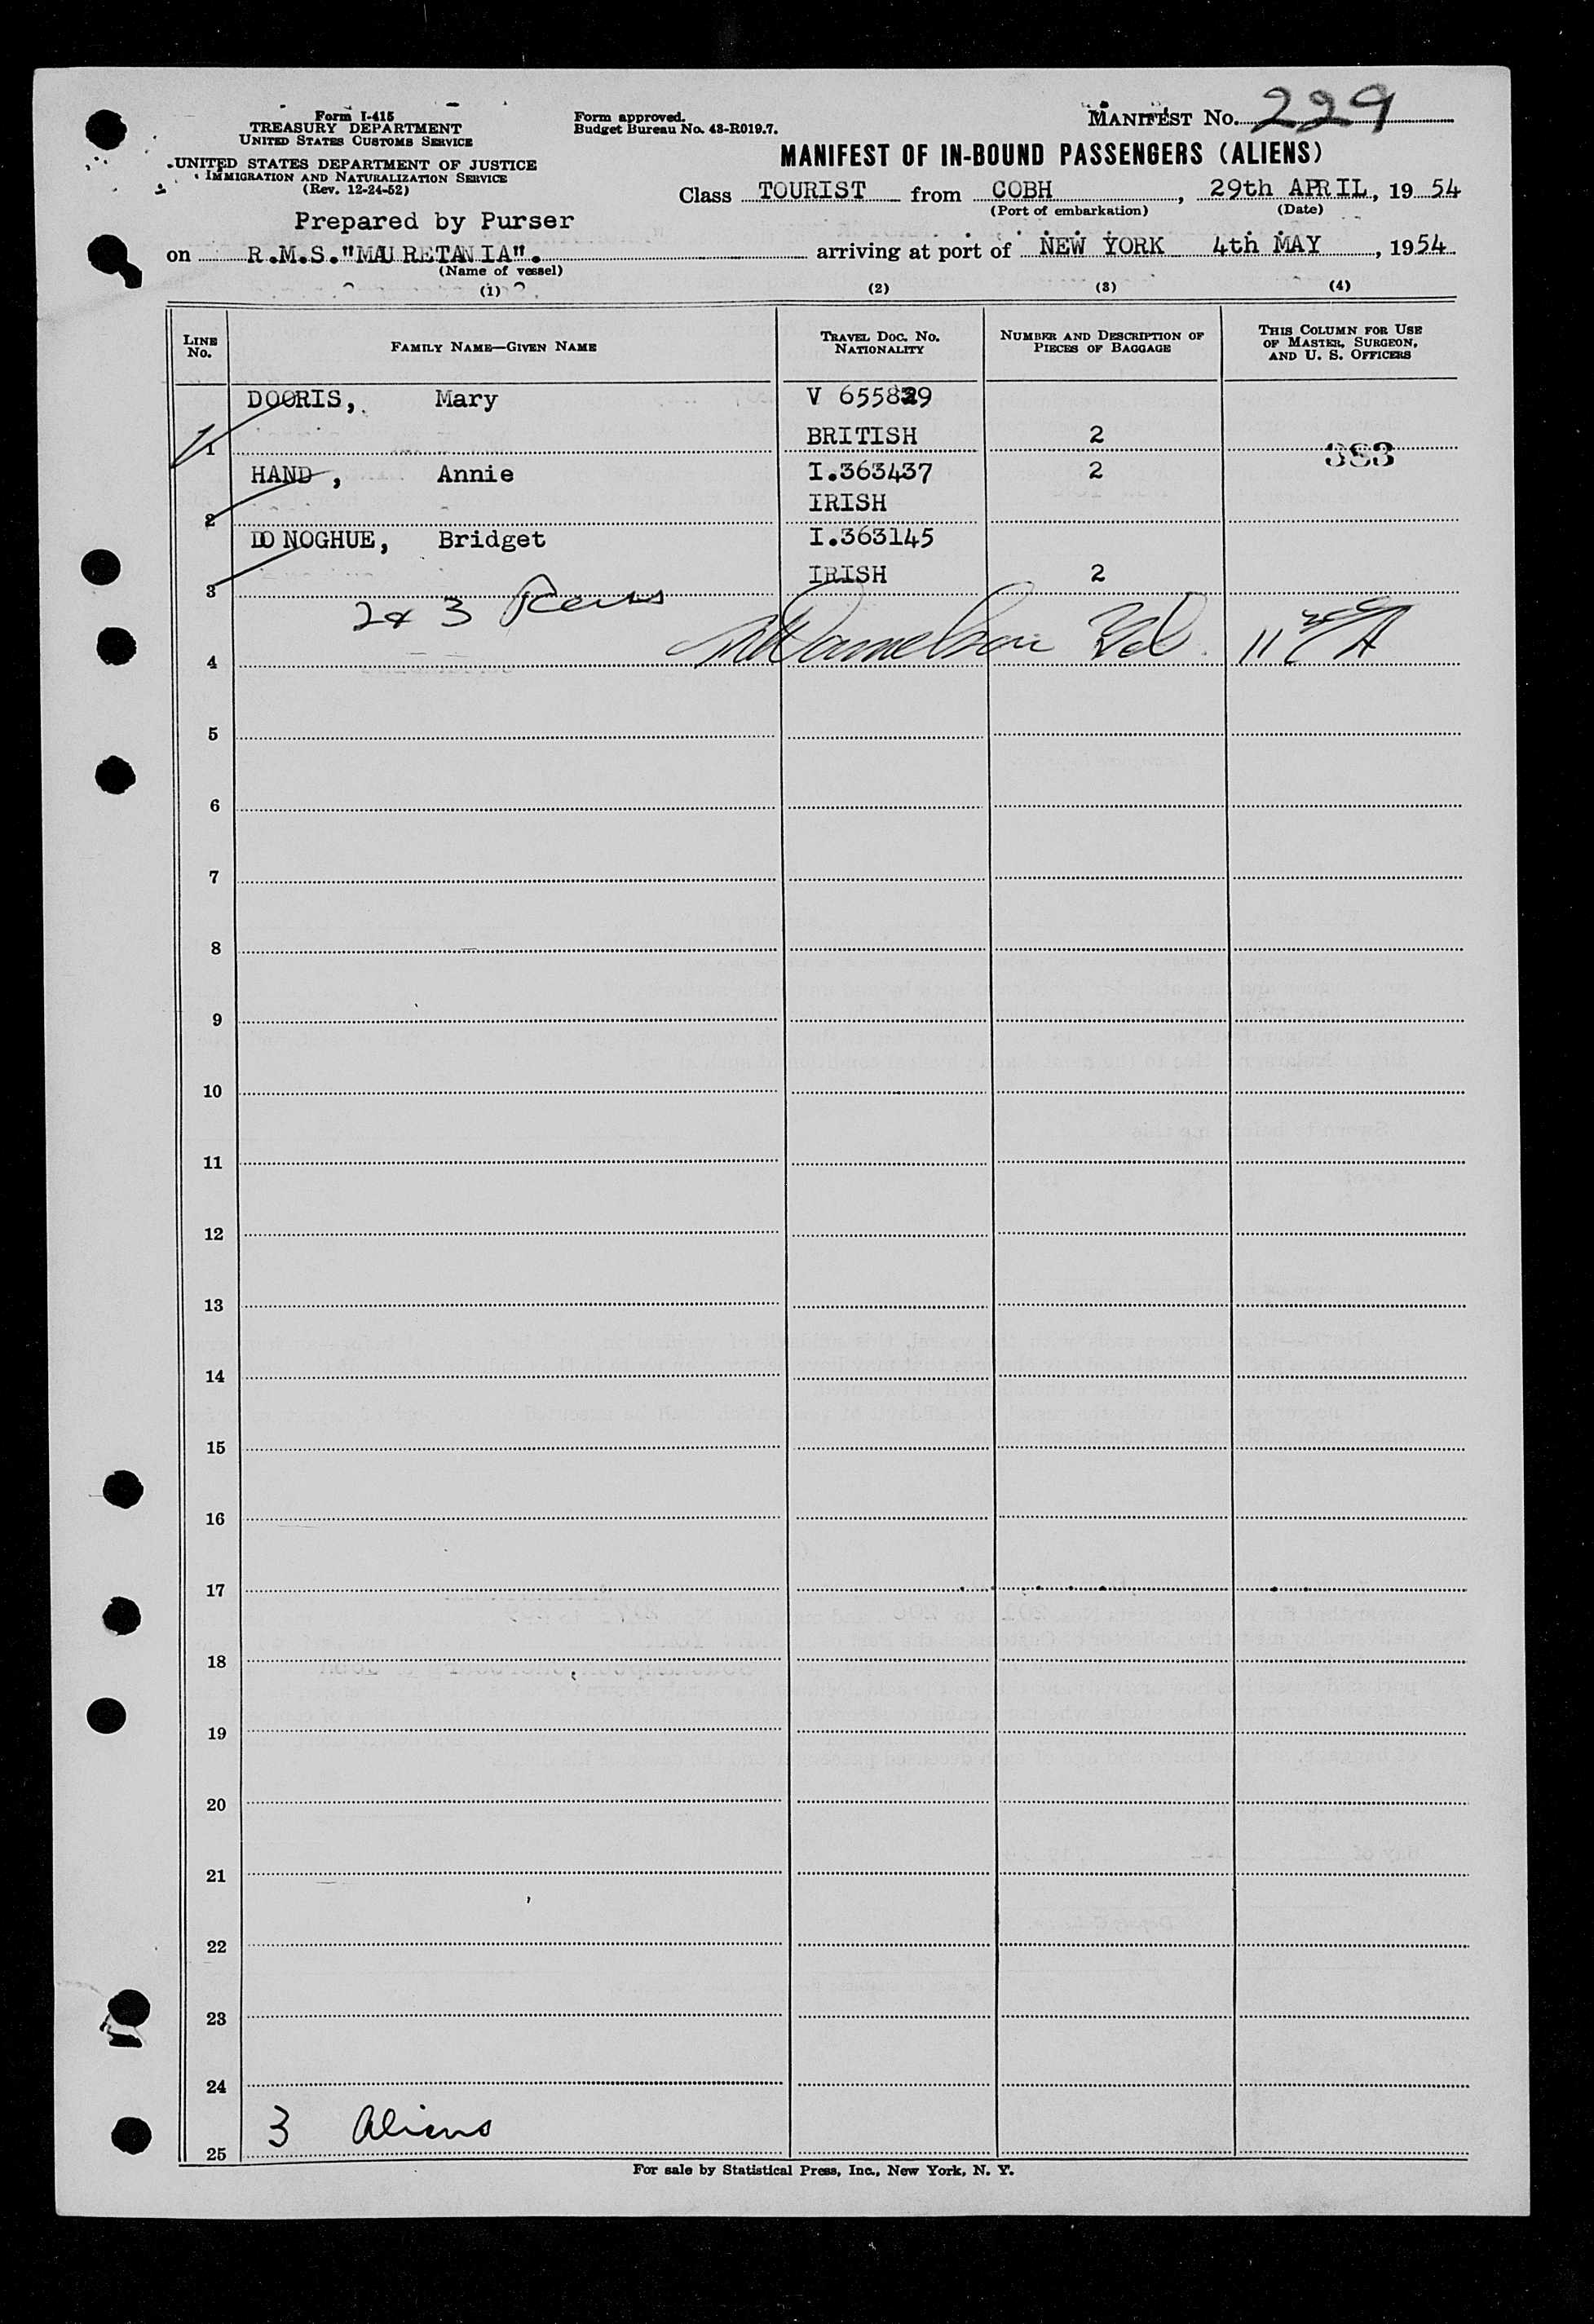 Form I-415
TREASURY DEPARTMENT
UNITED STATES CUSTOMS SERVICE
UNITED STATES DEPARTMENT OF JUSTICE
IMMIGRATION AND NATURALIZATION SERVICE
(Rev. 12-24-52)
Form approved.
Budget Bureau No. 43-R019.7.
MANIFEST No. 229
MANIFEST OF IN-BOUND PASSENGERS (ALIENS)
Class TOURIST from COBH, 29th APRIL, 19 54
(Port of embarkation) (Date)
Prepared by Purser
on R.M.S."MAURETANIA". arriving at port of NEW YORK 4th MAY, 1954
(Name of vessel)
(1) (2) (3) (4)
LINE No. FAMILY NAME—GIVEN NAME TRAVEL DOC. NO. NATIONALITY NUMBER AND DESCRIPTION OF PIECES OF BAGGAGE THIS COLUMN FOR USE OF MASTER, SURGEON, AND U. S. OFFICERS
DOORIS, Mary V 655829
1 BRITISH 2 383
HAND, Annie I.363437 2
2 IRISH
DONOGHUE, Bridget I.363145
3 IRISH 2
2 & 3
4
5
6
7
8
9
10
11
12
13
14
15
16
17
18
19
20
21
22
23
24
3 Aliens
25
For sale by Statistical Press, Inc., New York, N. Y.